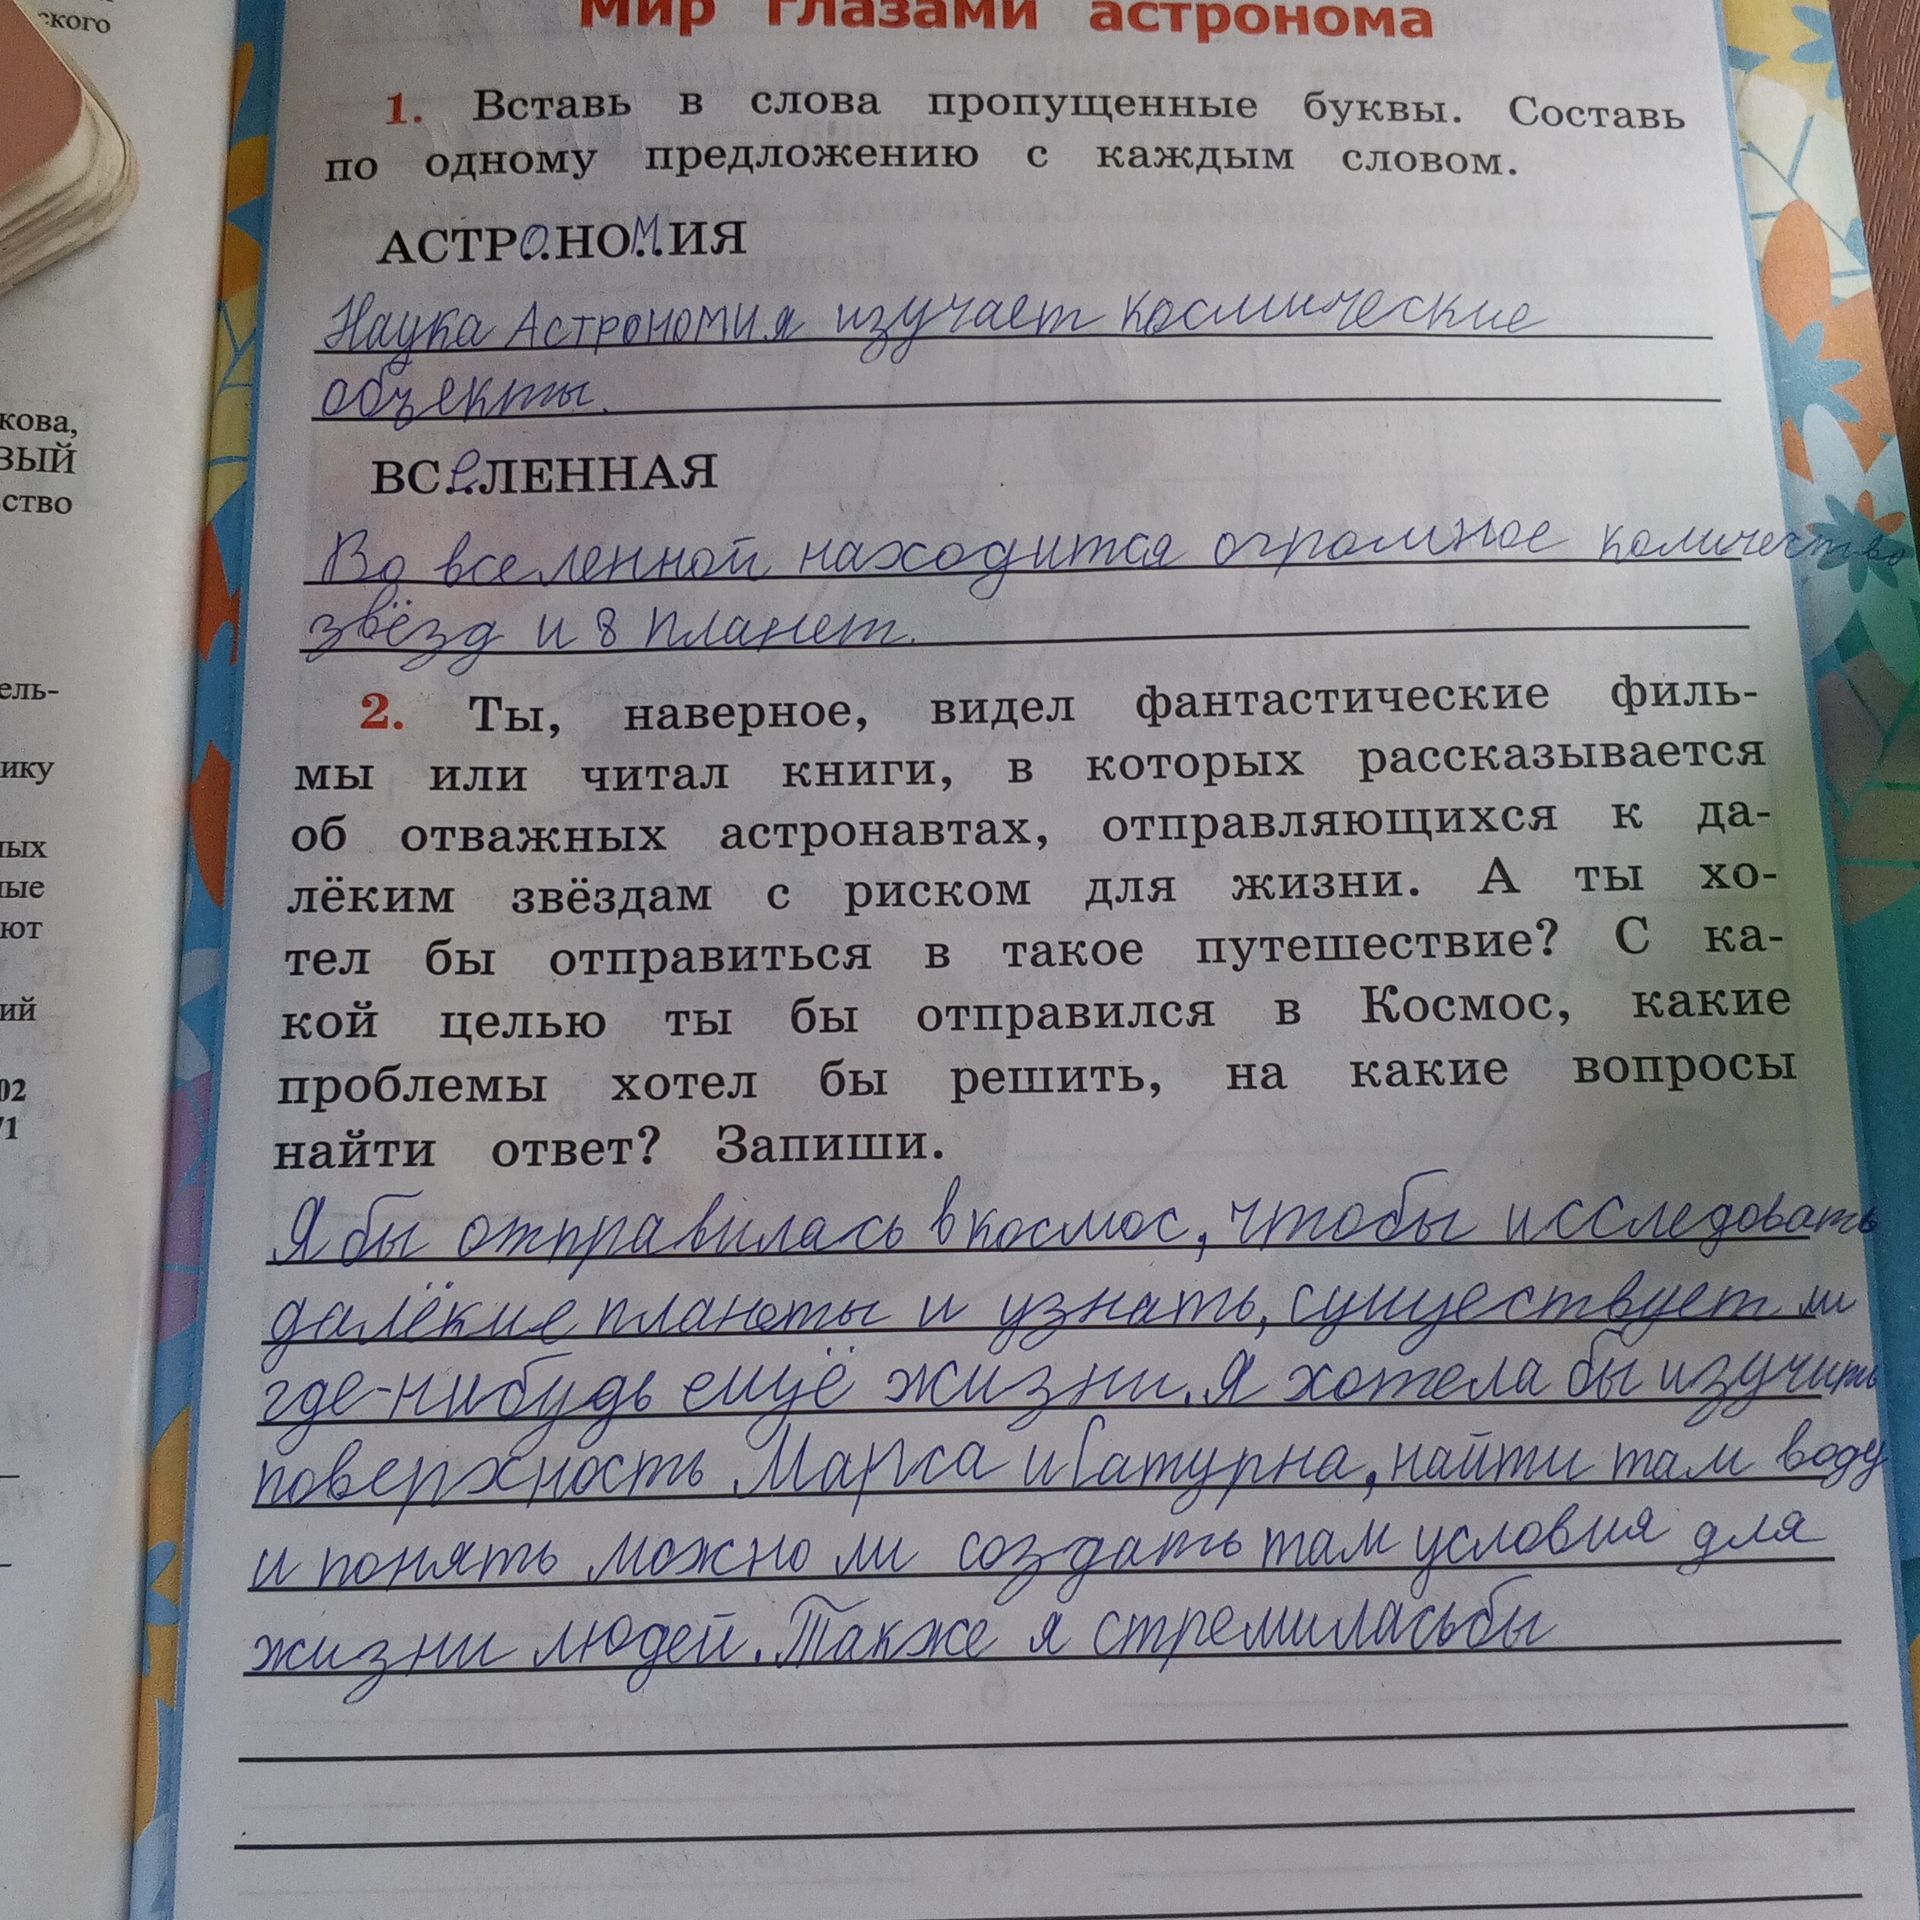 ского
кова,
ство
ель-
ику
ных
ные
ют
ий
02
71
Мир глазами астронома
1. Вставь в слова пропущенные буквы. Составь
по одному предложению с каждым словом.
АСТРО.НОМ.ИЯ
Наука Астрономия изучает космические
объекты.
ВСЕ.ЛЕННАЯ
Во вселенной находится огромное количество
звёзд и 8 планет.
2. Ты, наверное, видел фантастические филь-
мы или читал книги, в которых рассказывается
об отважных астронавтах, отправляющихся к да-
лёким звёздам с риском для жизни. А ты хо-
тел бы отправиться в такое путешествие? С ка-
кой целью ты бы отправился в Космос, какие
проблемы хотел бы решить, на какие вопросы
найти ответ? Запиши.
Я бы отправилась в космос, чтобы исследовать
далёкие планеты и узнать, существует ли
где-нибудь ещё жизни. Я хотела бы изучить
поверхность Марса и Сатурна, найти там воду
и понять можно ли создать там условия для
жизни людей. Также я стремилась бы